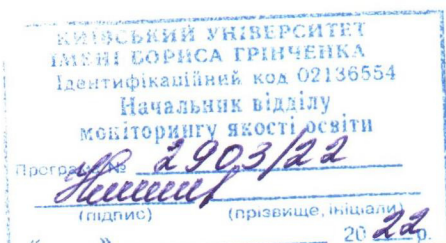 КИЇВСЬКИЙ УНІВЕРСИТЕТ
ІМЕНІ БОРИСА ГРІНЧЕНКА
Ідентифікаційний код 02136554
Начальник відділу
моніторингу якості освіти
Програма № 2903/22
(підпис) (прізвище, ініціали)
“ ” 2022 р.